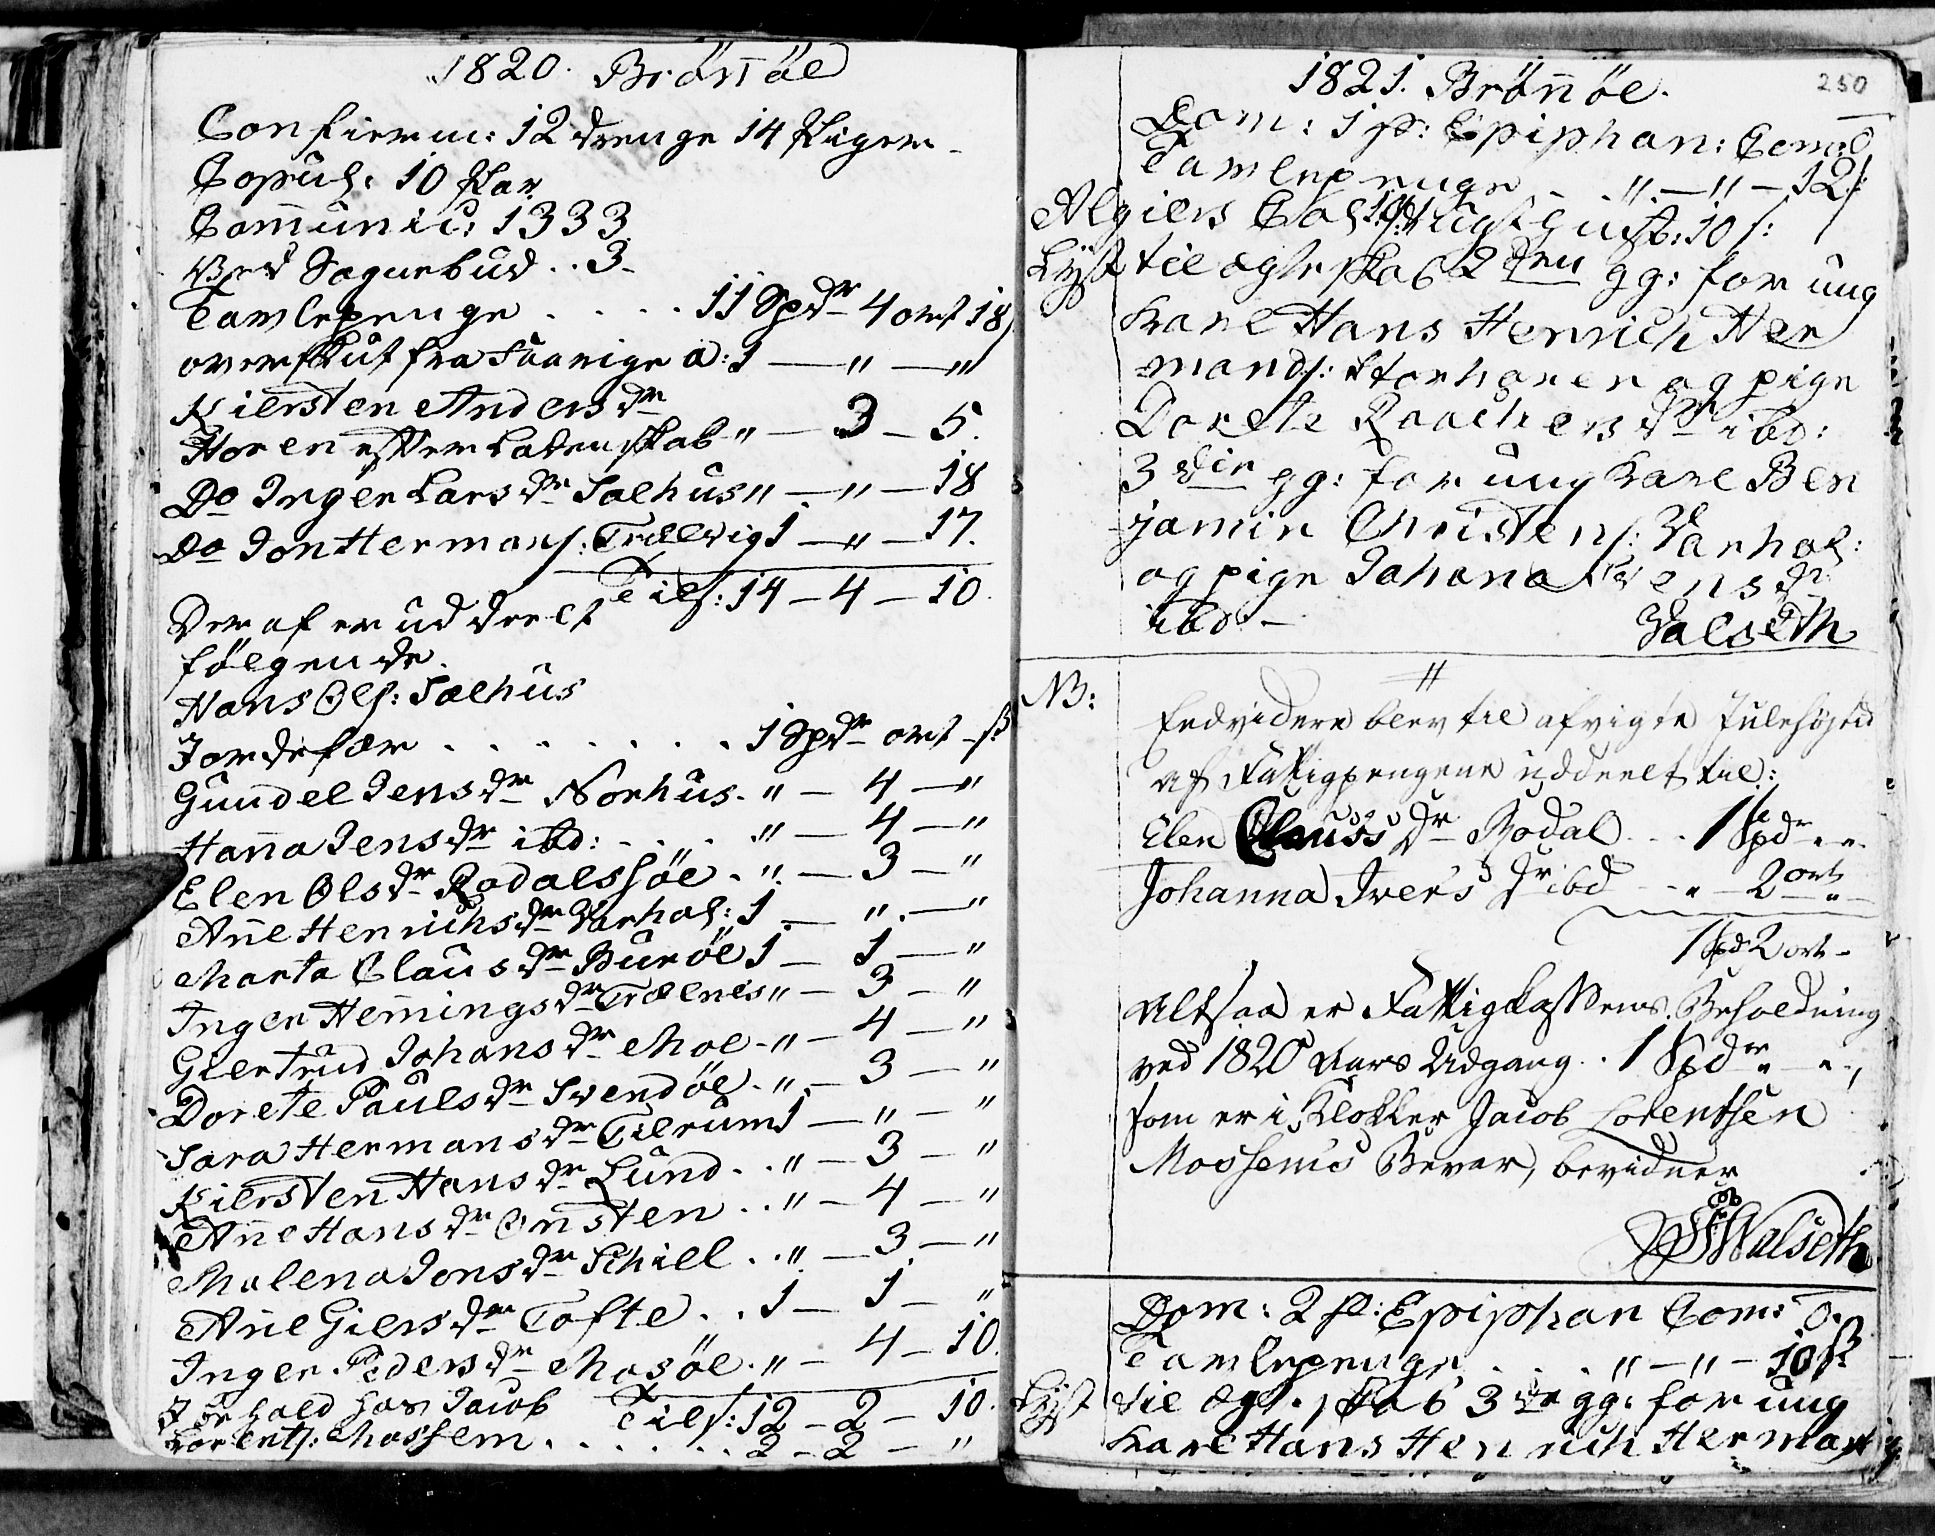 1820. Brönöe
Confierm: 12 drenge 14 Piger
Copul: 10 Par
Communic: 1333
Ved Sognebud . . 3.
Tavlepenge . . . . 11 Spdr 4 ort 18 s
overskut fra Saavige a: 1 — " — "
Kiersten Andersdr
Horen efterladenskab " — 3 — 5.
Do Inger Larsdr Salhus " — " — 18
Do Jon Hermans: Trælvig 1 — " — 17.
Tils: 14 — 4 — 10.
Deraf er ud deelt
følgende.
Hans Ols: Salhus
Jordefær . . . . . . . 1 Spdr ort s
Gundel Jensdr Norhus. " — 4 — "
Hana Jensdr ibd: . . . . " — 4 — "
Elen Olsdr Rodalssöe . " — 3 — "
Ane Henrichsdr Varhol: 1 — " — "
Marta Clausdr Buröe 1 — 1 — "
Inger Hemingsdr Trælnes " — 3 — "
Giertrud Johansdr Moe . " — 4 — "
Dorete Paulsdr Svendöe . " — 3 — "
Sara Hermansdr Tilrum 1 — " — "
Kiersten Hansdr Lund . . " — 3 — "
Ane Hansdr Onsten . . " — 4 — "
Malena Jonsdr Schill . . " — 3 — "
Ane Giersdr Tofte . . 1 — 1 — "
Inger Pedersdr Mosöe . " — 4 — 10.
Tils: 12 — 2 — 10.
I behold hos Jacob
Lorents: Mossem . . . . . . 2 — 2 — "
250
1821. Brönöe.
Dom: 1 p: Epiphan: Com: 0
Tavlepenge . . " — " — 12 s
Algiers Col:
Lyst til ægteskab 2den gg: for ung
Karl Hans Henrich Her
mands: Storhoren og pige
Dorete Raachersdr ibd:
3die gg: for ung Karl Ben
jamin Christens: Varhol:
og pige Johana Jensdr
ibd. —
Valseth
NB:
Endvidere blev til afvigte Julehøjtid
af Fattigpengene uddeelt til:
Elen Clausdr Rodal . . . 1 Spdr " "
Johanna Iversdr ibd - " - 2 ort "
1 Spd 2 ort -
Altsaa er Fattigkassens Beholdning
ved 1820 Aars Udgang . . 1 Spdr " ",
som er i Klokker Jacob Lorentsen
Mossems Bevar, bevidner
Walseth
Dom: 2 p: Epiphan Com: 0.
Tavlepenge . . . . " — " — 10 s
Lyst til ægteskab 3die gg: for ung
Karl Hans Henrich Herman